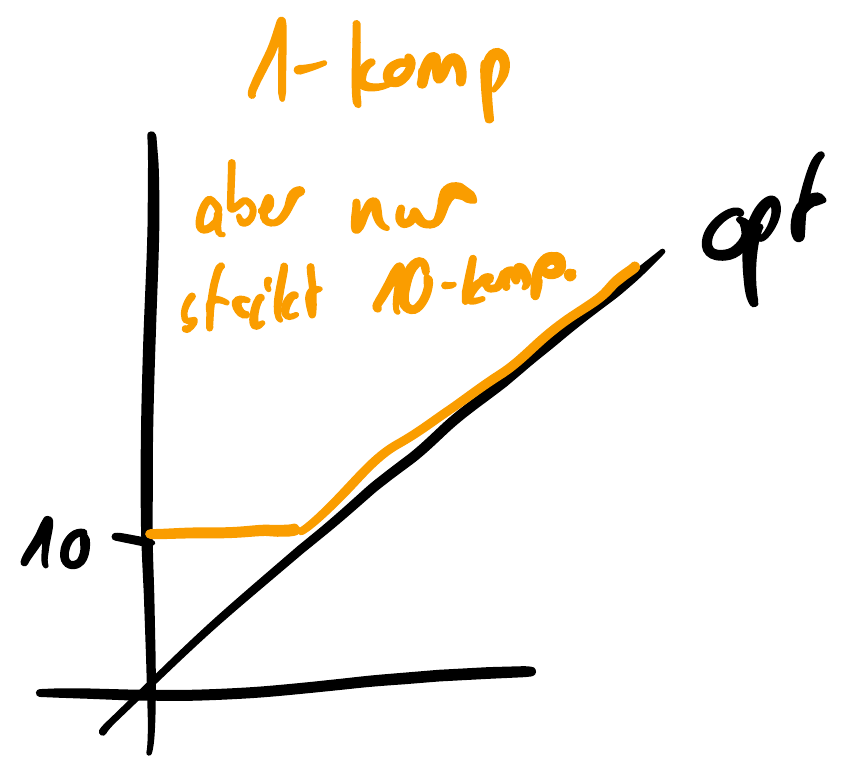 1-komp
aber nur
strikt 10-komp.
opt
10